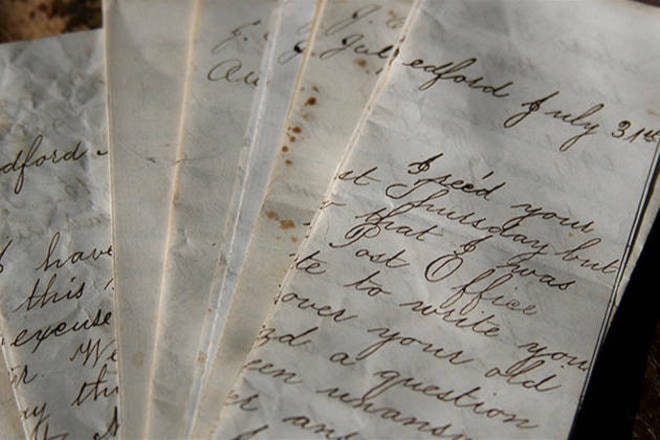 dford
I have
this
excuse
r. We
ay thi
J.
Au
J.
Jul
edford July 31st
I rec'd your
st Thursday but
that I was
Post Office
te to write you
over your old
a question
een unansw
er an